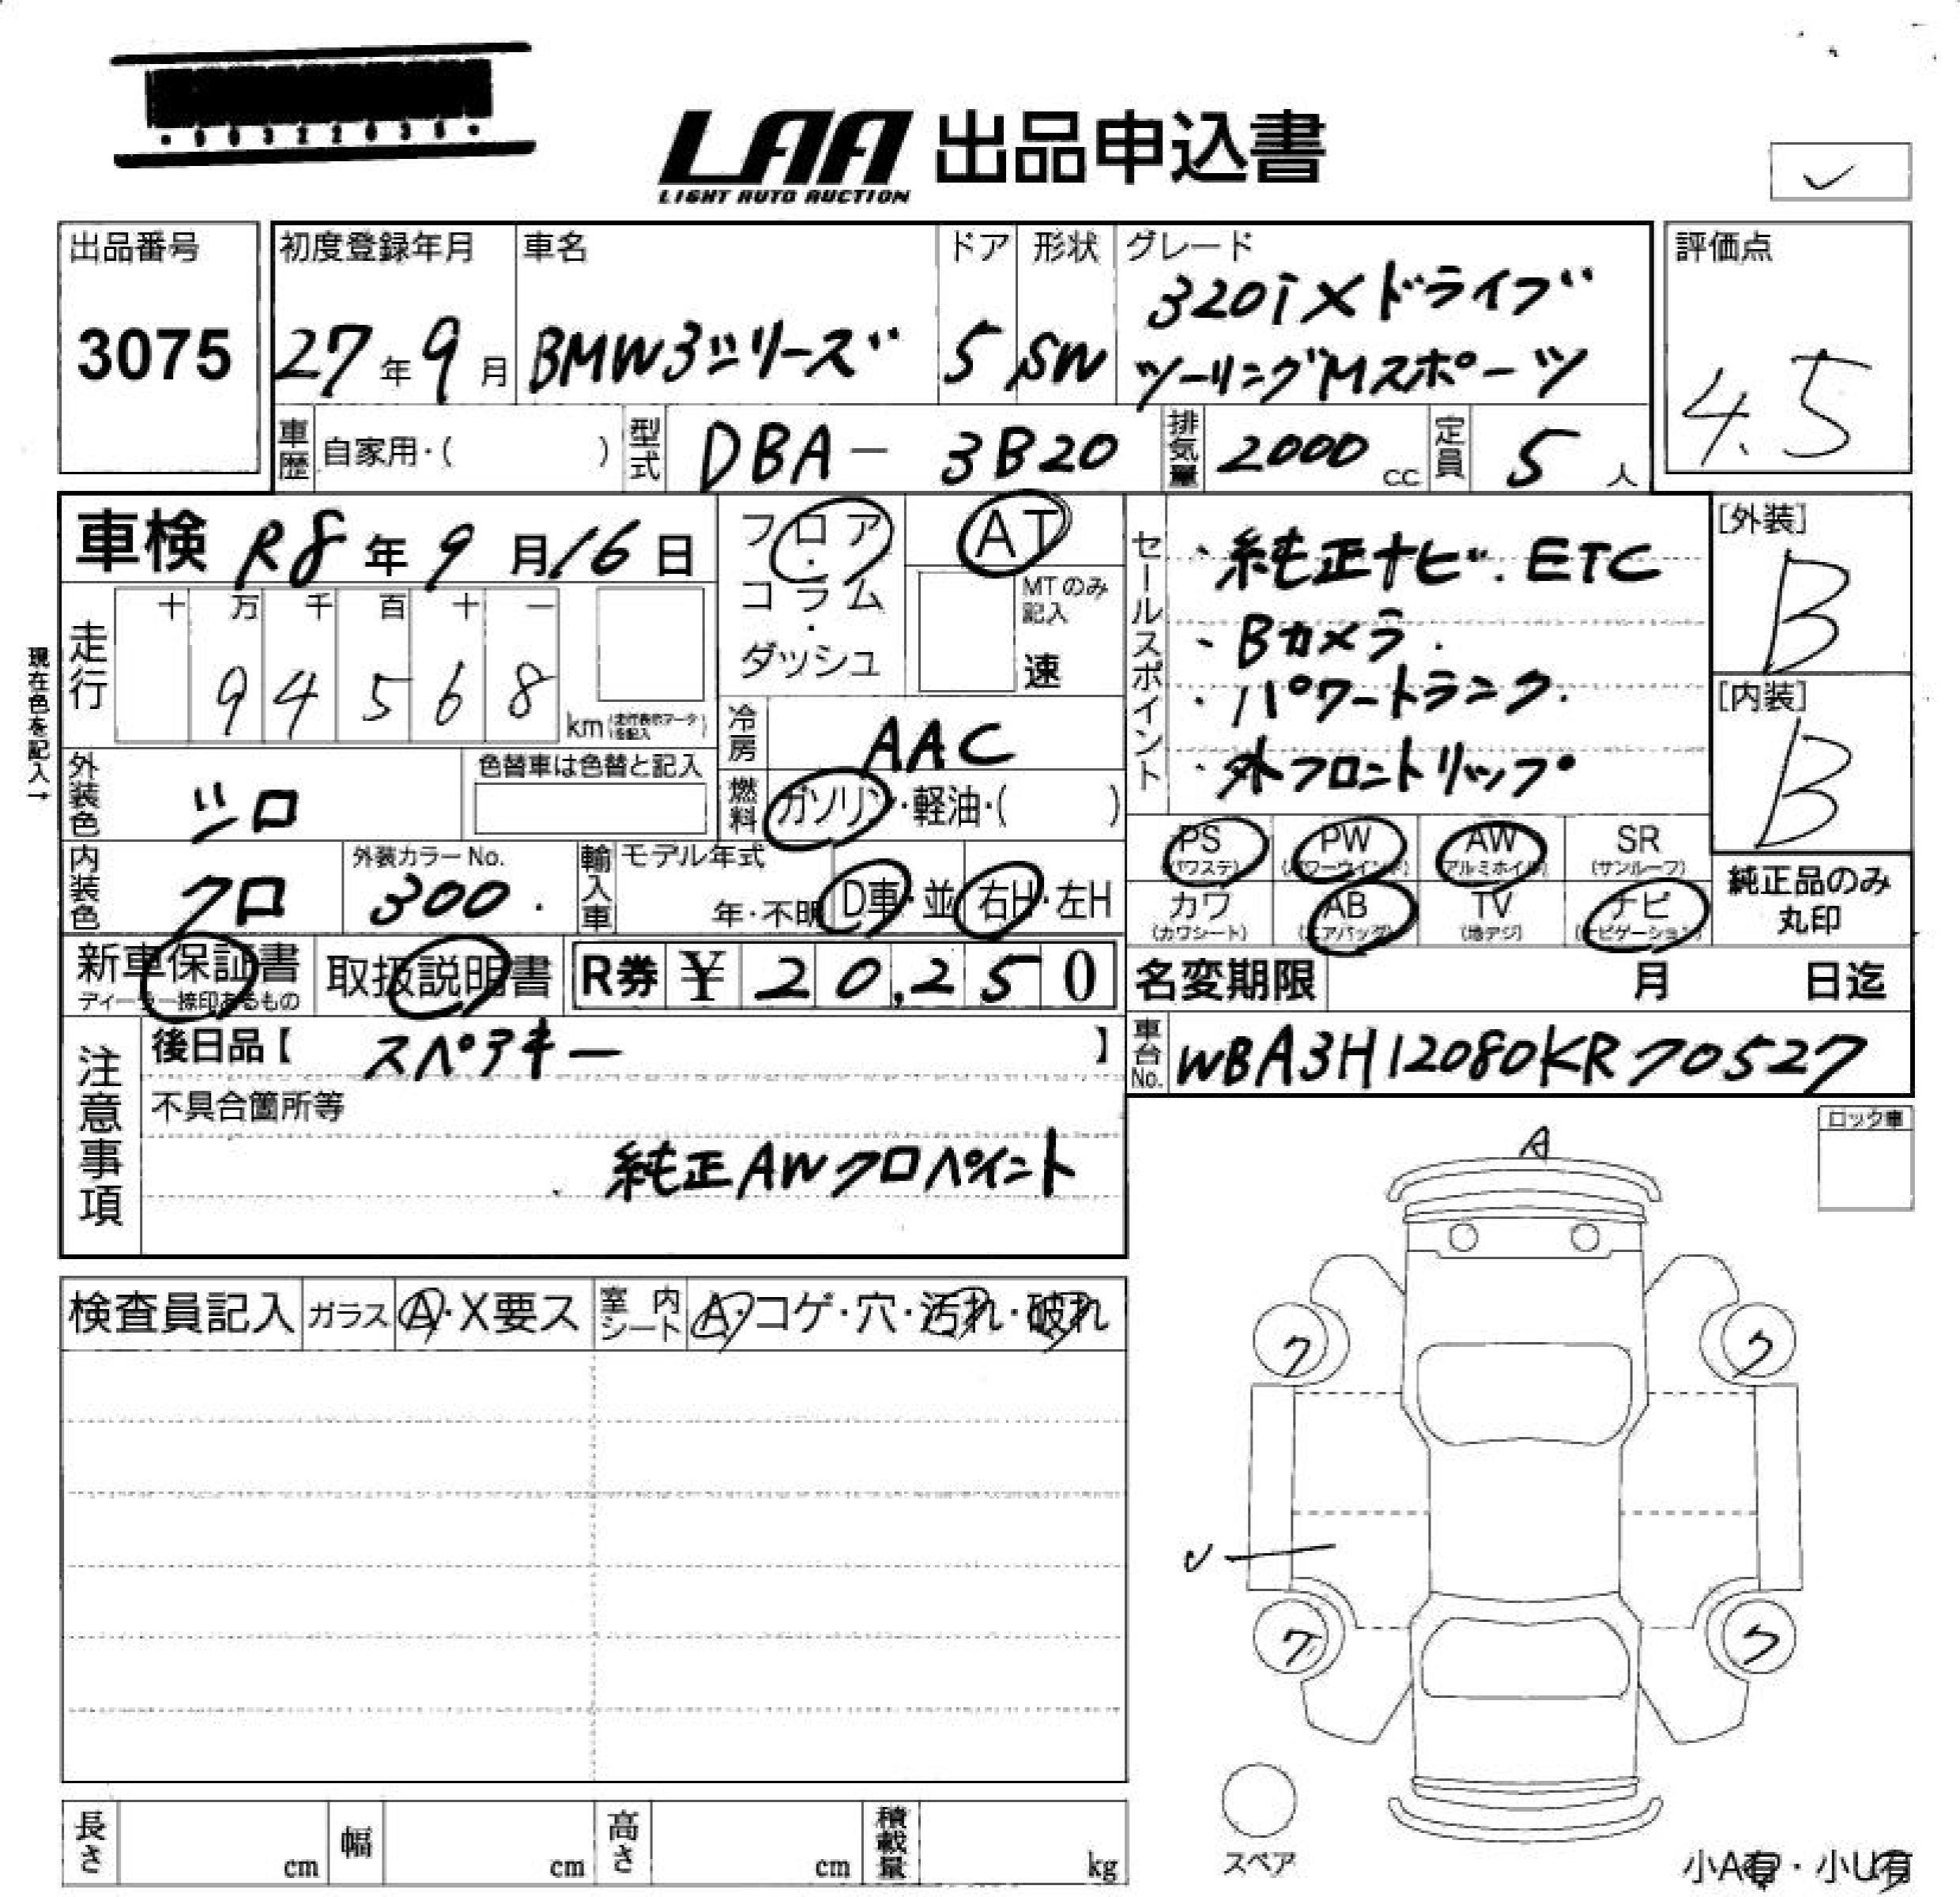 LAA 出品申込書
LIGHT AUTO AUCTION
✓
出品番号
3075
初度登録年月
27年9月
車名
BMW3シリーズ
ドア
5
形状
SW
グレード
320i Xドライブ
ツーリングMスポーツ
評価点
4.5
車歴 自家用・( )
型式 DBA- 3B20
排気量 2000 cc
定員 5 人
車検 R8年9月16日
フロア・コラム・ダッシュ
AT
MTのみ記入
速
セールスポイント
・純正ナビ.ETC
・Bカメラ.
・パワートランク.
・外フロントリップ
[外装]
B
[内装]
B
現在色を記入→
走行
十 万 千 百 十 一
9 4 5 6 8
km
冷房 AAC
燃料 ガソリン・軽油・( )
外装色 シロ
色替車は色替と記入
内装色 クロ
外装カラーNo.
300.
輸入車 モデル年式
年・不明
D車・並
右H・左H
PS
(パワステ)
PW
(パワーウインド)
AW
(アルミホイル)
SR
(サンルーフ)
カワ
(カワシート)
AB
(エアバッグ)
TV
(地デジ)
ナビ
(ナビゲーション)
純正品のみ
丸印
新車保証書
ディーラー捺印あるもの
取扱説明書
R券 ¥ 20,250
名変期限 月 日迄
注意事項
後日品【 スペアキー 】
車台No. WBA3H12080KR70527
不具合箇所等
純正AWクロペイント
ロック車
A
検査員記入
ガラス A・X要ス
室内シート A・コゲ・穴・汚れ・破れ
ク ク
✓
ク ク
スペア
長さ cm
幅 cm
高さ cm
積載量 kg
小A有・小U有